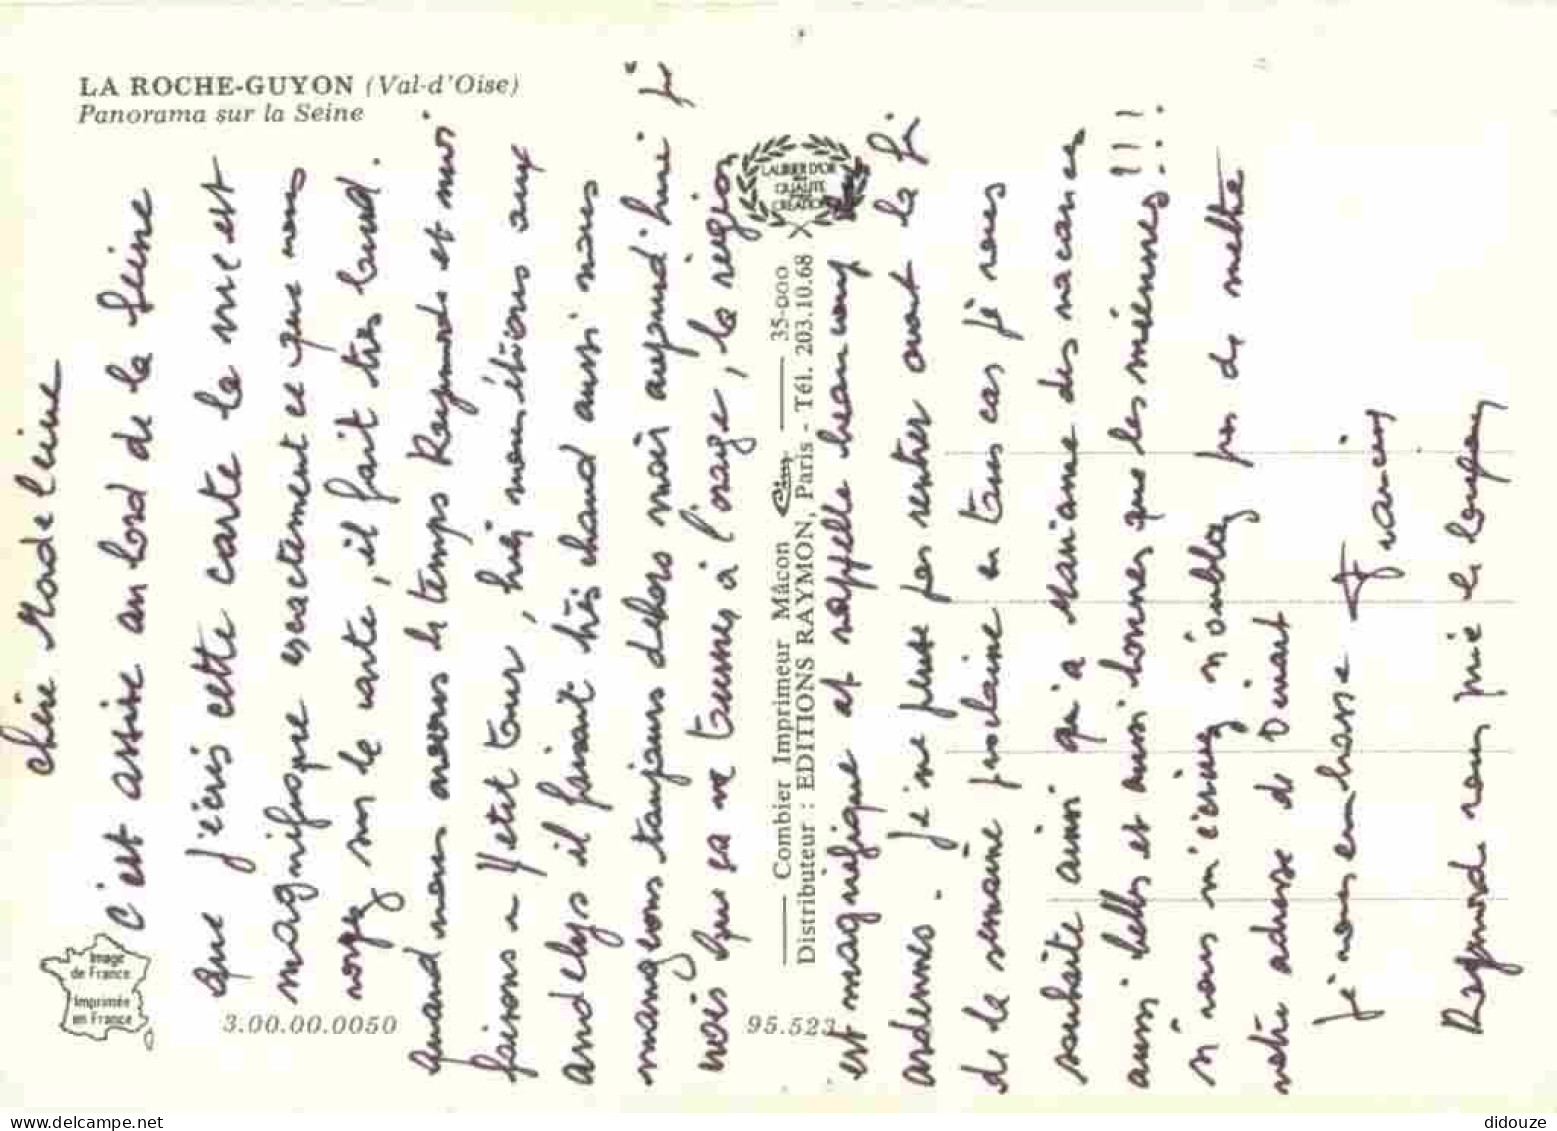 LA ROCHE-GUYON (Val-d'Oise)
Panorama sur la Seine
chère Madeleine
C'est assise au bord de la Seine
que j'écris cette carte la vue est
magnifique exactement ce que vous
voyez sur la carte, il fait très lourd.
quand nous avons le temps Raymonde et moi
faisons un petit tour, hier nous étions aux
andelys il faisait très chaud aussi nous
mangeons toujours dehors mais aujourd'hui je
vois que ça va tourner à l'orage, la région
est magnifique et rappelle beaucoup les
ardennes. je ne pense pas rentrer avant la fin
de la semaine prochaine en tous cas je vous
souhaite ainsi qu'à Marianne des vacances
aussi belles et aussi bonnes que les miennes!!!
si vous m'écrivez n'oubliez pas de mettre
votre adresse de Dinant
je vous embrasse Francis
Raymond vous prie
LAURIER D'OR
QUALITÉ
CRÉATION
Combier Imprimeur Mâcon Cim 35-000
Distributeur : EDITIONS RAYMON, Paris - Tél. 203.10.68
Image
de France
Imprimée
en France
3.00.00.0050
95.523
didouze
delcampe.net